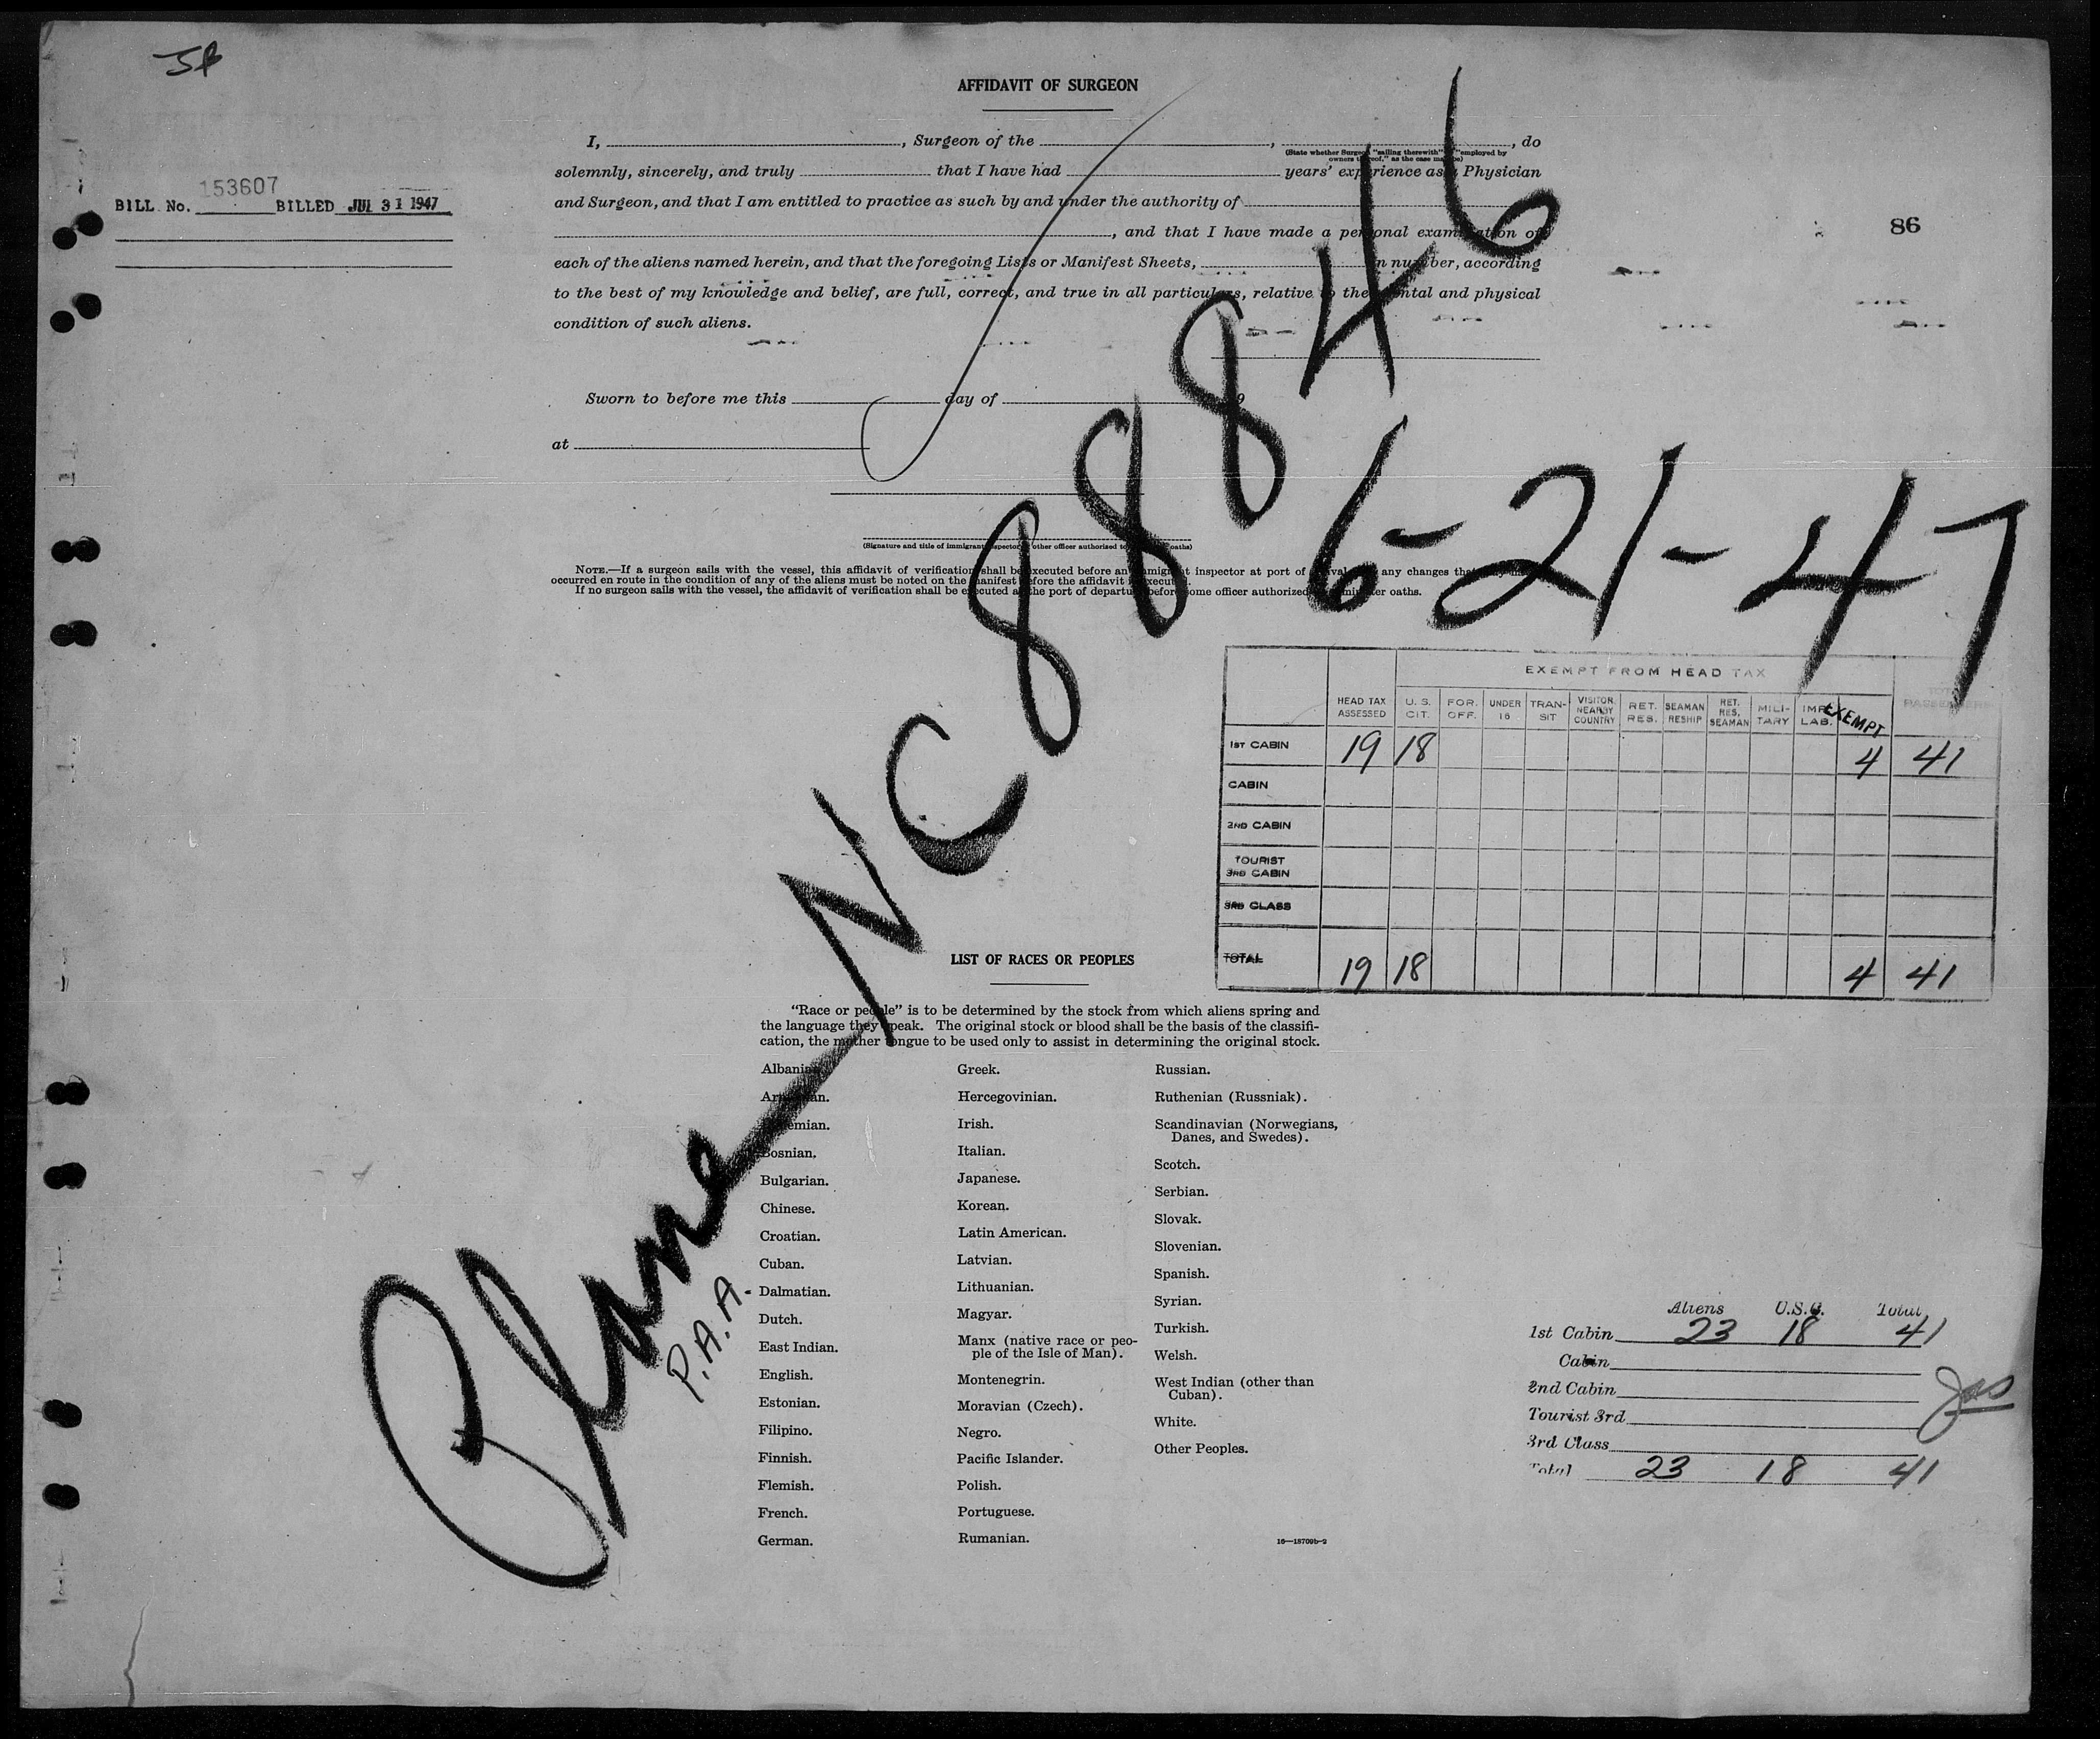 AFFIDAVIT OF SURGEON
I, , Surgeon of the , , do
(State whether Surgeon "sailing therewith" "employed by
owners thereof," as the case may be)
solemnly, sincerely, and truly that I have had years' experience as a Physician
and Surgeon, and that I am entitled to practice as such by and under the authority of
, and that I have made a personal examination of
each of the aliens named herein, and that the foregoing Lists or Manifest Sheets, in number, according
to the best of my knowledge and belief, are full, correct, and true in all particulars, relative to the mental and physical
condition of such aliens.
BILL No. 153607 BILLED JUL 31 1947
86
Sworn to before me this day of 19
at
(Signature and title of immigrant inspector or other officer authorized to oaths)
NOTE.—If a surgeon sails with the vessel, this affidavit of verification shall be executed before an immigrant inspector at port of arrival any changes that
occurred en route in the condition of any of the aliens must be noted on the manifest before the affidavit is executed.
If no surgeon sails with the vessel, the affidavit of verification shall be executed at the port of departure before some officer authorized to administer oaths.
Plane NC 88846
6-21-47
P.A.A.
EXEMPT FROM HEAD TAX
HEAD TAX ASSESSED U. S. CIT. FOR. OFF. UNDER 16 TRANSIT VISITOR NEARBY COUNTRY RET. RES. SEAMAN RESHIP RET. RES. SEAMAN MILITARY IMP. LAB. EXEMPT PASSENGERS
1ST CABIN 19 18 4 41
CABIN
2ND CABIN
TOURIST 3RD CABIN
3RD CLASS
TOTAL 19 18 4 41
LIST OF RACES OR PEOPLES
"Race or people" is to be determined by the stock from which aliens spring and
the language they speak. The original stock or blood shall be the basis of the classifi-
cation, the mother tongue to be used only to assist in determining the original stock.
Albanian.
Armenian.
Bohemian.
Bosnian.
Bulgarian.
Chinese.
Croatian.
Cuban.
Dalmatian.
Dutch.
East Indian.
English.
Estonian.
Filipino.
Finnish.
Flemish.
French.
German.
Greek.
Hercegovinian.
Irish.
Italian.
Japanese.
Korean.
Latin American.
Latvian.
Lithuanian.
Magyar.
Manx (native race or peo-
ple of the Isle of Man).
Montenegrin.
Moravian (Czech).
Negro.
Pacific Islander.
Polish.
Portuguese.
Rumanian.
Russian.
Ruthenian (Russniak).
Scandinavian (Norwegians,
Danes, and Swedes).
Scotch.
Serbian.
Slovak.
Slovenian.
Spanish.
Syrian.
Turkish.
Welsh.
West Indian (other than
Cuban).
White.
Other Peoples.
16—18709b-2
Aliens U.S.C. Total
1st Cabin 23 18 41
Cabin
2nd Cabin
Tourist 3rd
3rd Class
Total 23 18 41